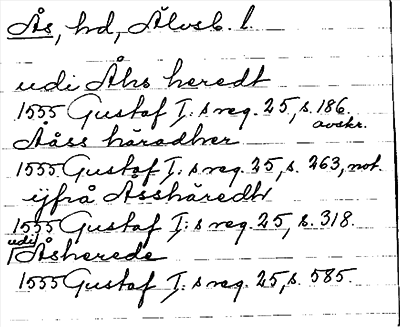 Ås, hd, Älvsb. l.
udi Åhs heredt
1555 Gustaf I:s reg. 25, s. 186.
avskr.
Ååss häradher
1555 Gustaf I:s reg. 25, s. 263, not.
ifrå Åsshäredh
1555 Gustaf I:s reg. 25, s. 318.
udi Åsherede
1555 Gustaf I:s reg. 25, s. 585.